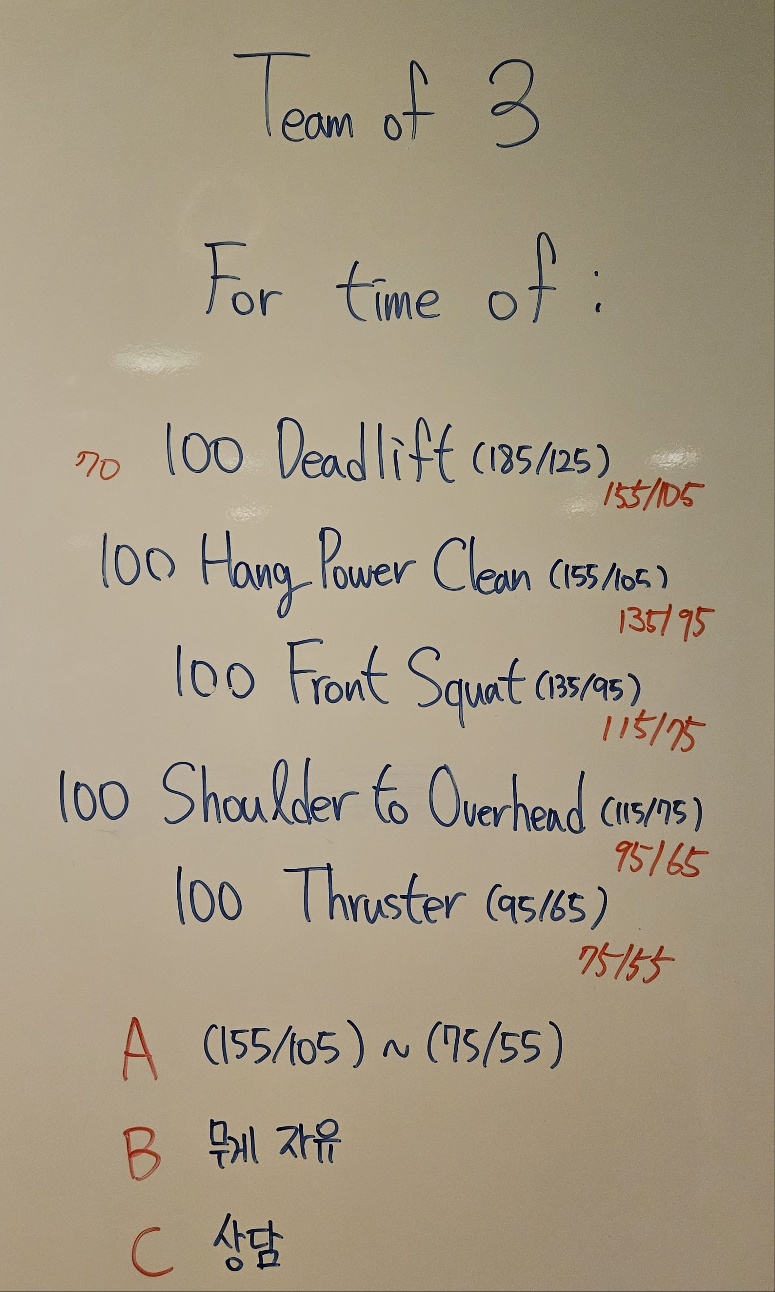 Team of 3
For time of :
70 100 Deadlift (185/125)
155/105
100 Hang Power Clean (155/105)
135/95
100 Front Squat (135/95)
115/75
100 Shoulder to Overhead (115/75)
95/65
100 Thruster (95/65)
75/55
A (155/105) ~ (75/55)
B 무게 자유
C 상담